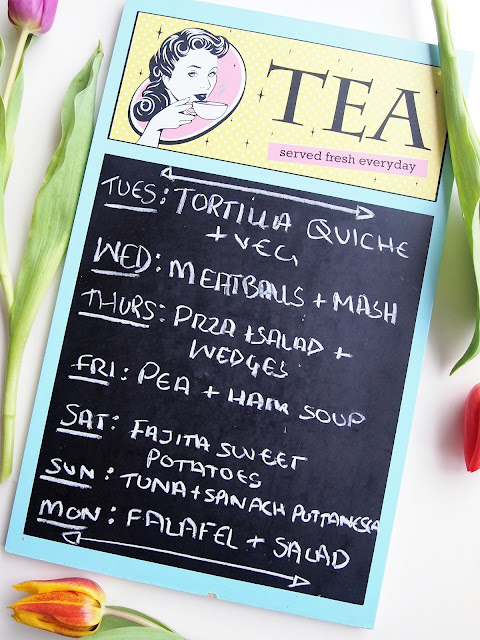 TEA
served fresh everyday
TUES: TORTILLA QUICHE
+ VEG
WED: MEATBALLS + MASH
THURS: PIZZA + SALAD +
WEDGES
FRI: PEA + HAM SOUP
SAT: FAJITA SWEET
POTATOES
SUN: TUNA + SPINACH PUTTANESCA
MON: FALAFEL + SALAD